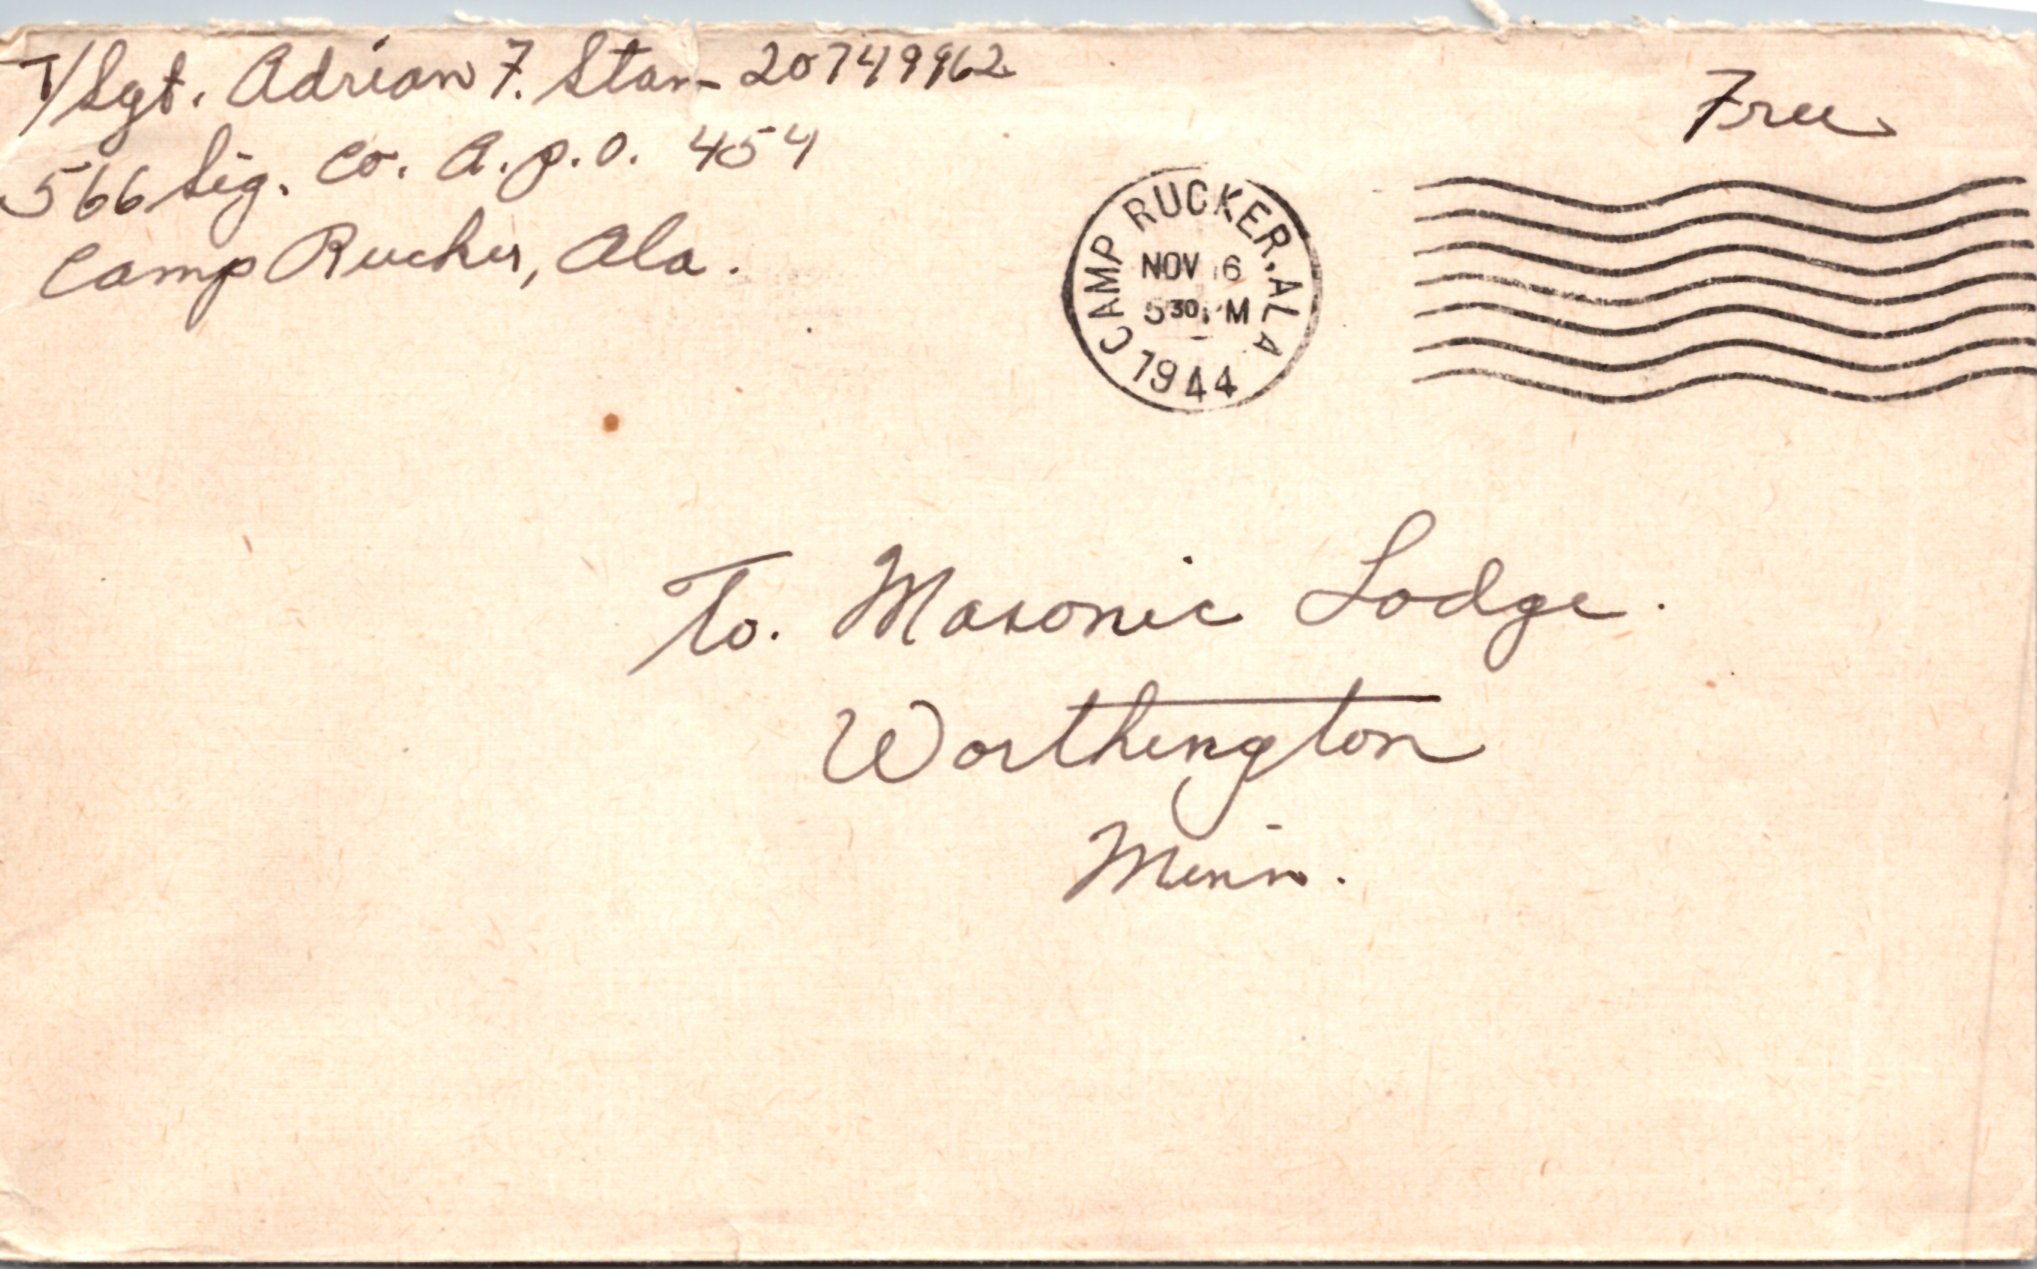 T/Sgt. Adrian F. Star - 20749962
566 Sig. Co. A.p.o. 454
Camp Rucker, Ala.
Free
CAMP RUCKER, ALA
NOV 16
530 PM
1944
To. Masonic Lodge.
Worthington
Minn.